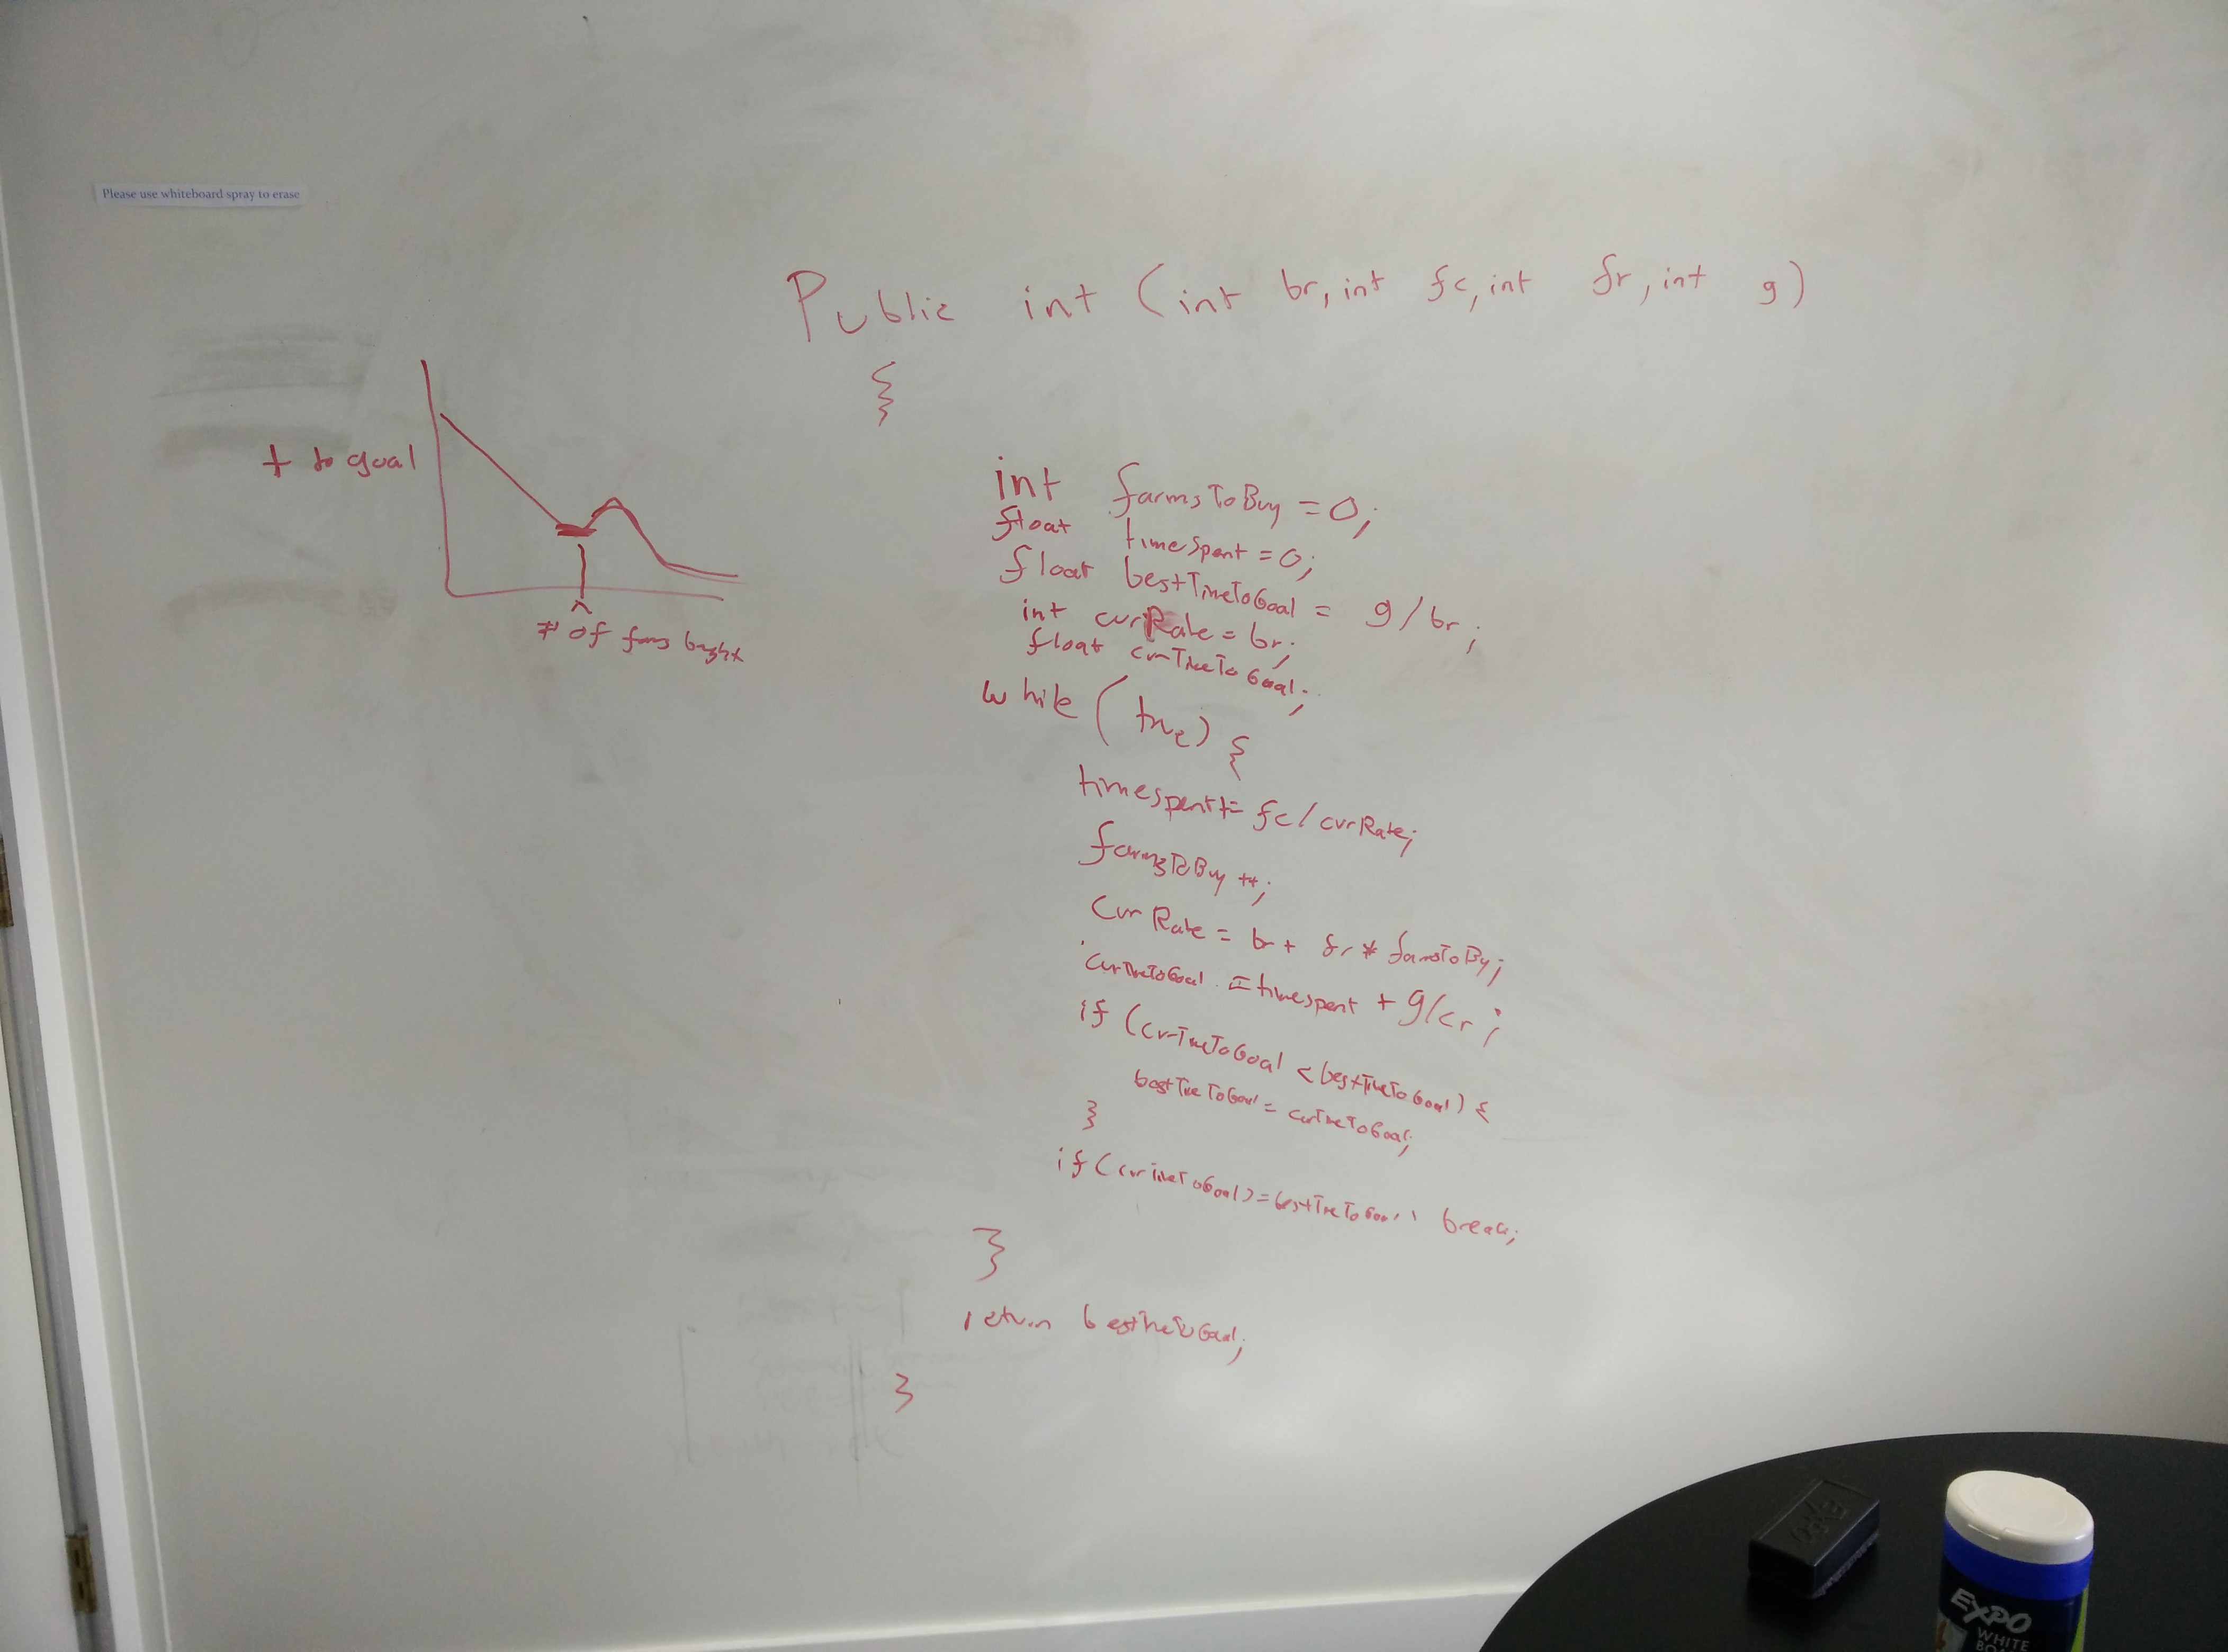 Please use whiteboard spray to erase
Public int (int br, int fc, int fr, int g)
{
t to goal
# of farms bought
int farmsToBuy = 0;
float timeSpent = 0;
float bestTimeToGoal = g/br;
int curRate = br;
float curTimeToGoal;
while (true) {
timespent += fc/curRate;
farmsToBuy ++;
CurRate = br + fr * farmsToBy;
curTimeToGoal = timespent + g/cr;
if (curTimeToGoal < bestTimeToGoal) {
bestTimeToGoal = curTimeToGoal;
}
if (curTimeToGoal >= bestTimeToGoal) break;
}
return bestTimeToGoal;
}
EXPO
EXPO
WHITE